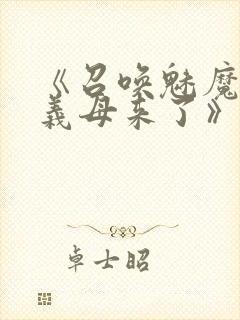 《召唤魅魔
义母来了》
卓士昭